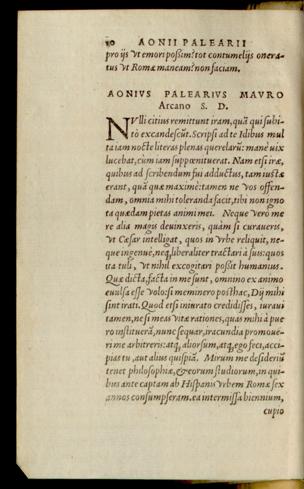 50 AONII PALEARII
pro ijs ut emori possim? tot contumelijs onera-
tus ut Romæ maneam? non faciam.
AONIVS PALEARIVS MAVRO
Arcano S. D.
NVlli citius remittunt iram, quā qui subi-
tò excandescūt. Scripsi ad te Idibus mul
ta iam nocte literas plenas querelarū: mane vix
lucebat, cùm iam suppœnituerat. Nam etsi iræ,
quibus ad scribendum fui adductus, tam iustæ
erant, quā quæ maximè: tamen ne vos offen-
dam, omnia mihi toleranda facit, tibi non igno
ta quædam pietas animi mei. Neque verò me
re alia magis devinxeris, quàm si curaveris,
ut Cæsar intelligat, quos in Vrbe reliquit, ne-
que ingenuè, neq; liberaliter tractari à suis: quos
ita tuli, ut nihil excogitari possit humanius.
Quæ dicta, facta in me sunt, omnino ex animo
evulsa esse volo: si meminero posthac, Dij mihi
sint irati. Quod etsi iniurato credidisses, iuravi
tamen, ne si meas vitæ rationes, quas mihi à pue
ro institueram, nunc sequar, iracundia promove-
ri me arbitreris: atq; aliorsum, atq; ego feci, acci-
pias tu, aut alius quispiā. Mirum me desideriū
tenet philosophiæ, & eorum studiorum, in qui-
bus ante captam ab Hispanis Vrbem Romæ sex
annos consumpseram. ea intermissa biennium,
cupio